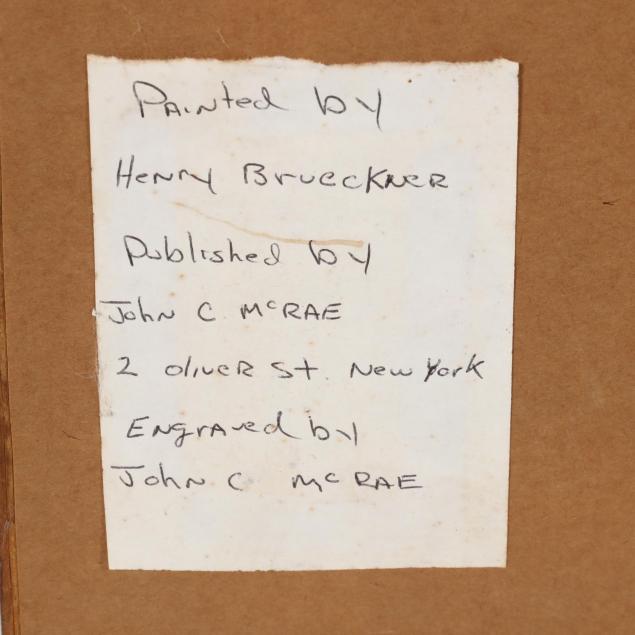 Painted by
Henry Brueckner
Published by
John C McRAE
2 oliver St. New York
Engraved by
John C McRAE